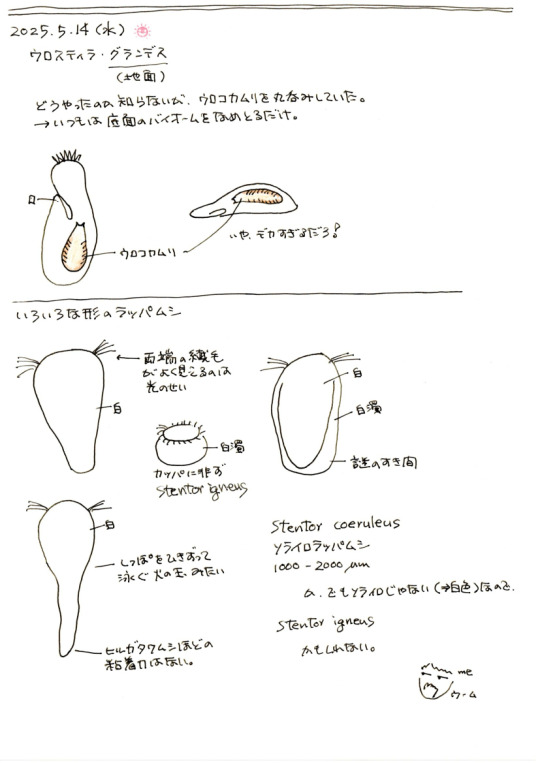 2025.5.14(水)
ウロスティラ・グランデス
(地面)
どうやったのか知らないが、ウロコカムリを丸なみしていた。
→いつもは底面のバイオームをなめとるだけ。
口
ウロコカムリ
いや、デカすぎるだろ!
いろいろな形のラッパムシ
← 両端の繊毛
がよく見えるのは
光のせい
白
白濁
カッパに非ず
Stentor igneus
白
白濁
謎のすき間
白
しっぽをひきずって
泳ぐ火の玉みたい
ヒルガタワムシほどの
粘着力はない。
Stentor coeruleus
ソライロラッパムシ
1000-2000μm
か、でもソライロじゃない(⇒白色)なので、
Stentor igneus
かもしれない。
me
ウーム